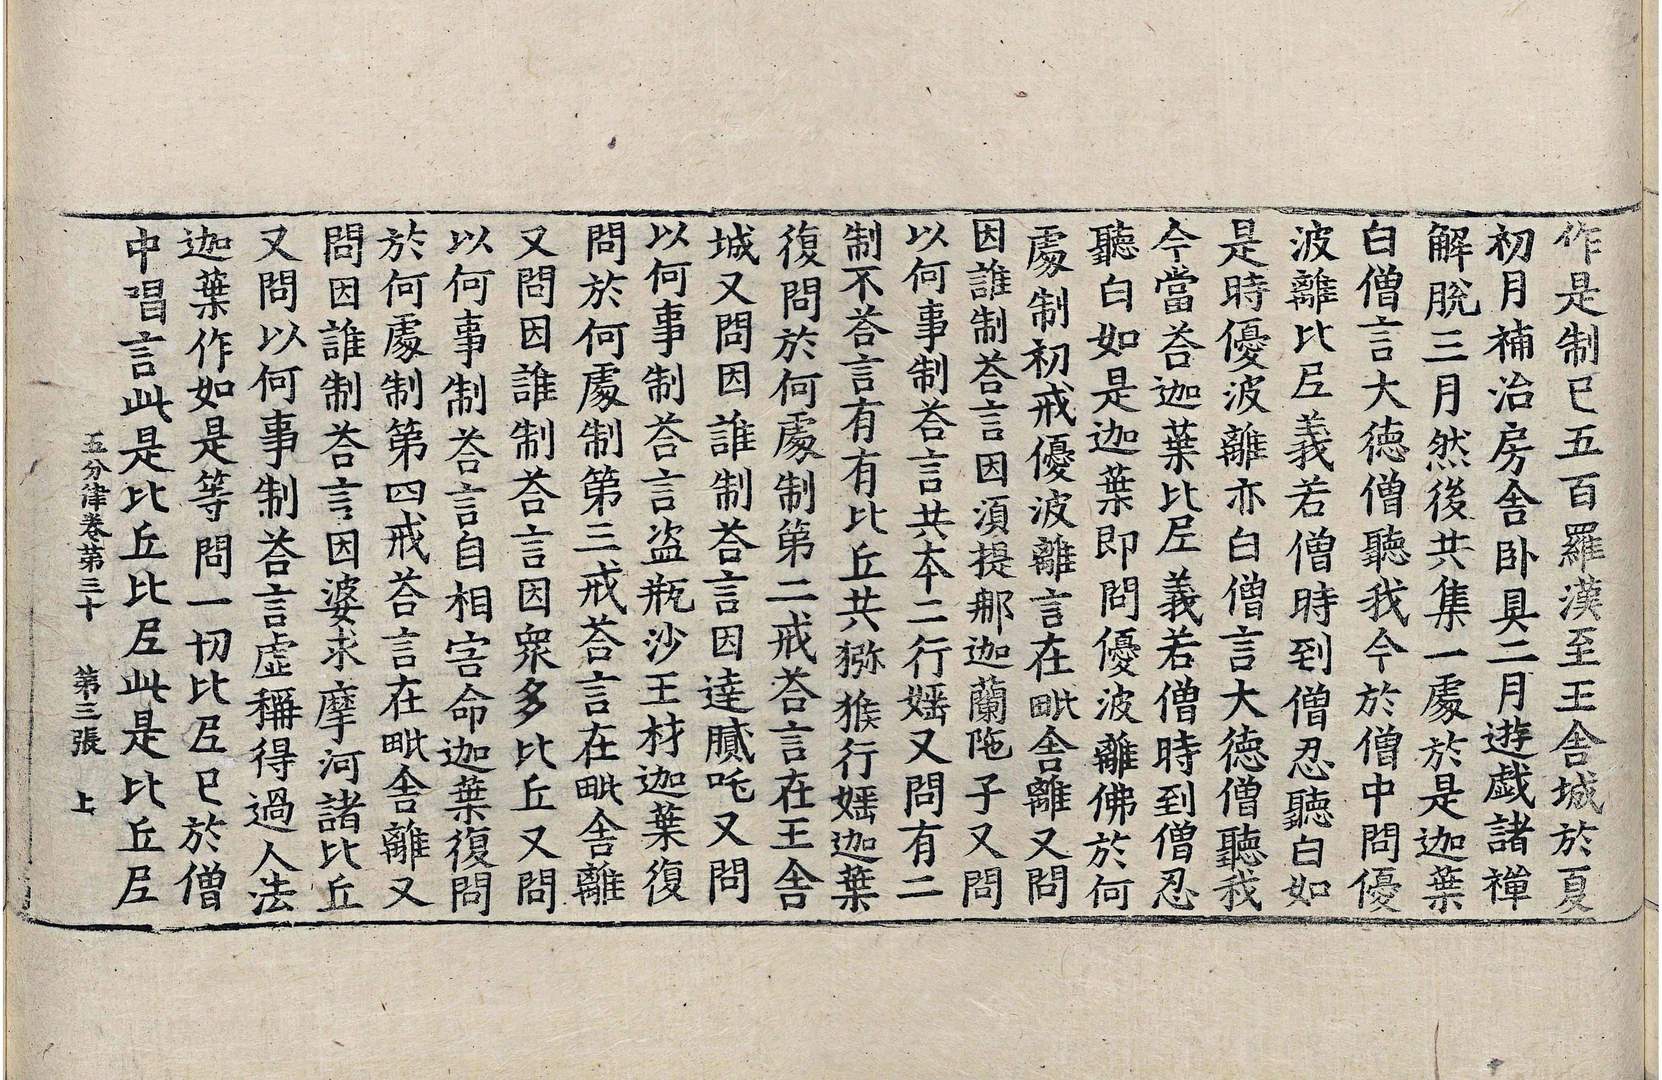 作是制已五百羅漢至王舍城於夏
初月補治房舍卧具二月遊戯諸禪
解脫三月然後共集一處於是迦葉
白僧言大德僧聽我今於僧中問優
波離比𡰱義若僧時到僧忍聽白如
是時優波離亦白僧言大德僧聽我
今當荅迦葉比𡰱義若僧時到僧忍
聽白如是迦葉即問優波離佛於何
處制初戒優波離言在毗舍離又問
因誰制荅言因湏提那迦蘭陁子又問
以何事制荅言共本二行婬又問有二
制不荅言有有比丘共獼猴行婬迦葉
復問於何處制第二戒荅言在王舍
城又問因誰制荅言因達膩吒又問
以何事制荅言盜瓶沙王材迦葉復
問於何處制第三戒荅言在毗舍離
又問因誰制荅言因衆多比丘又問
以何事制荅言自相害命迦葉復問
於何處制第四戒荅言在毗舍離又
問因誰制荅言因婆求摩河諸比丘
又問以何事制荅言虛稱得過人法
迦葉作如是等問一切比𡰱已於僧
中唱言此是比丘比𡰱此是比丘𡰱
五分律卷第三十 第三張 上